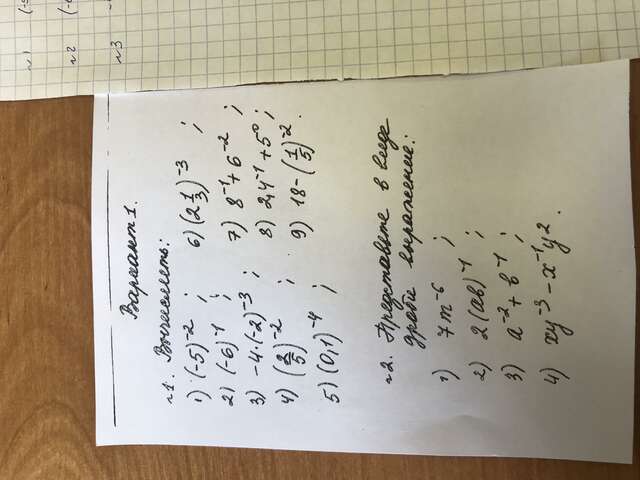 Вариант 1.
№1. Вычислить:
1) (-5)⁻² ;
2) (-6)⁻¹ ;
3) -4·(-2)⁻³ ;
4) (2/5)⁻² ;
5) (0,1)⁻⁴ ;
6) (2 1/3)⁻³ ;
7) 8⁻¹ + 6⁻² ;
8) 2,4⁻¹ + 5⁰ ;
9) 18 - (1/5)⁻² .
№2. Представьте в виде
дроби выражение:
1) 7m⁻⁶ ;
2) 2(ab)⁻¹ ;
3) a⁻² + b⁻¹ ;
4) xy⁻³ - x⁻¹y² .
№1
№2
№3